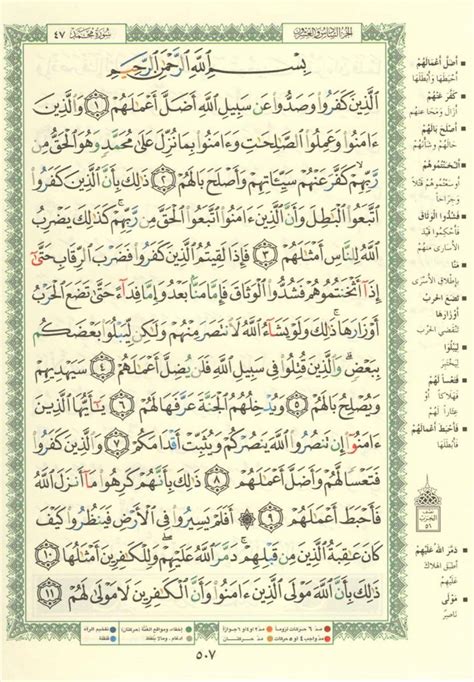 سُورَةُ مُحَمَّد ٤٧
الجزء السادس والعشرون
بِسْمِ ٱللَّهِ ٱلرَّحْمَٰنِ ٱلرَّحِيمِ
ٱلَّذِينَ كَفَرُوا۟ وَصَدُّوا۟ عَن سَبِيلِ ٱللَّهِ أَضَلَّ أَعْمَٰلَهُمْ ١ وَٱلَّذِينَ
ءَامَنُوا۟ وَعَمِلُوا۟ ٱلصَّٰلِحَٰتِ وَءَامَنُوا۟ بِمَا نُزِّلَ عَلَىٰ مُحَمَّدٍ وَهُوَ ٱلْحَقُّ مِن
رَّبِّهِمْ كَفَّرَ عَنْهُمْ سَيِّـَٔاتِهِمْ وَأَصْلَحَ بَالَهُمْ ٢ ذَٰلِكَ بِأَنَّ ٱلَّذِينَ كَفَرُوا۟
ٱتَّبَعُوا۟ ٱلْبَٰطِلَ وَأَنَّ ٱلَّذِينَ ءَامَنُوا۟ ٱتَّبَعُوا۟ ٱلْحَقَّ مِن رَّبِّهِمْ كَذَٰلِكَ يَضْرِبُ
ٱللَّهُ لِلنَّاسِ أَمْثَٰلَهُمْ ٣ فَإِذَا لَقِيتُمُ ٱلَّذِينَ كَفَرُوا۟ فَضَرْبَ ٱلرِّقَابِ حَتَّىٰٓ
إِذَآ أَثْخَنتُمُوهُمْ فَشُدُّوا۟ ٱلْوَثَاقَ فَإِمَّا مَنًّۢا بَعْدُ وَإِمَّا فِدَآءً حَتَّىٰ تَضَعَ ٱلْحَرْبُ
أَوْزَارَهَا ذَٰلِكَ وَلَوْ يَشَآءُ ٱللَّهُ لَٱنتَصَرَ مِنْهُمْ وَلَٰكِن لِّيَبْلُوَا۟ بَعْضَكُم
بِبَعْضٍ وَٱلَّذِينَ قُتِلُوا۟ فِى سَبِيلِ ٱللَّهِ فَلَن يُضِلَّ أَعْمَٰلَهُمْ ٤ سَيَهْدِيهِمْ
وَيُصْلِحُ بَالَهُمْ ٥ وَيُدْخِلُهُمُ ٱلْجَنَّةَ عَرَّفَهَا لَهُمْ ٦ يَٰٓأَيُّهَا ٱلَّذِينَ
ءَامَنُوٓا۟ إِن تَنصُرُوا۟ ٱللَّهَ يَنصُرْكُمْ وَيُثَبِّتْ أَقْدَامَكُمْ ٧ وَٱلَّذِينَ كَفَرُوا۟
فَتَعْسًا لَّهُمْ وَأَضَلَّ أَعْمَٰلَهُمْ ٨ ذَٰلِكَ بِأَنَّهُمْ كَرِهُوا۟ مَآ أَنزَلَ ٱللَّهُ
فَأَحْبَطَ أَعْمَٰلَهُمْ ٩ أَفَلَمْ يَسِيرُوا۟ فِى ٱلْأَرْضِ فَيَنظُرُوا۟ كَيْفَ
كَانَ عَٰقِبَةُ ٱلَّذِينَ مِن قَبْلِهِمْ دَمَّرَ ٱللَّهُ عَلَيْهِمْ وَلِلْكَٰفِرِينَ أَمْثَٰلُهَا ١٠
ذَٰلِكَ بِأَنَّ ٱللَّهَ مَوْلَى ٱلَّذِينَ ءَامَنُوا۟ وَأَنَّ ٱلْكَٰفِرِينَ لَا مَوْلَىٰ لَهُمْ ١١
أَضَلَّ أَعْمَالَهُمْ
أَحْبَطَهَا وَأَبْطَلَهَا
كَفَّرَ عَنْهُمْ
أَزَالَ وَمَحَا عَنْهُم
أَصْلَحَ بَالَهُمْ
حَالَهُمْ وَشَأْنَهُمْ
أَثْخَنْتُمُوهُمْ
أَوْسَعْتُمُوهُمْ قَتْلاً
وَجِرَاحاً
فَشُدُّوا الْوَثَاقَ
فَأَحْكِمُوا قَيْدَ
الأَسَارَى مِنْهُم
مَنّاً
بِإِطْلَاقِ الأَسْرَى
تَضَعَ الحَرْبُ
أَوْزَارَهَا
تَنْقَضِي الحَرْب
لِيَبْلُوَا
لِيَخْتَبِرَ
فَتَعْساً لَهُمْ
فَهَلَاكاً أَوْ
عِثَاراً لَهُمْ
فَأَحْبَطَ أَعْمَالَهُمْ
فَأَبْطَلَهَا
نصف
الحزب
٥١
دَمَّرَ اللهُ عَلَيْهِمْ
أَطْبَقَ الهَلَاكَ
عَلَيْهِمْ
مَوْلَى
نَاصِر
مدّ ٦ حركات لزوماً مدّ ٢ أو ٤ أو ٦ جوازاً إخفاء، ومواقع الغُنَّة (حركتان) تفخيم الراء
مدّ واجب ٤ أو ٥ حركات مدّ حركتان إدغام، وما لا يُلفظ قلقلة
٥٠٧